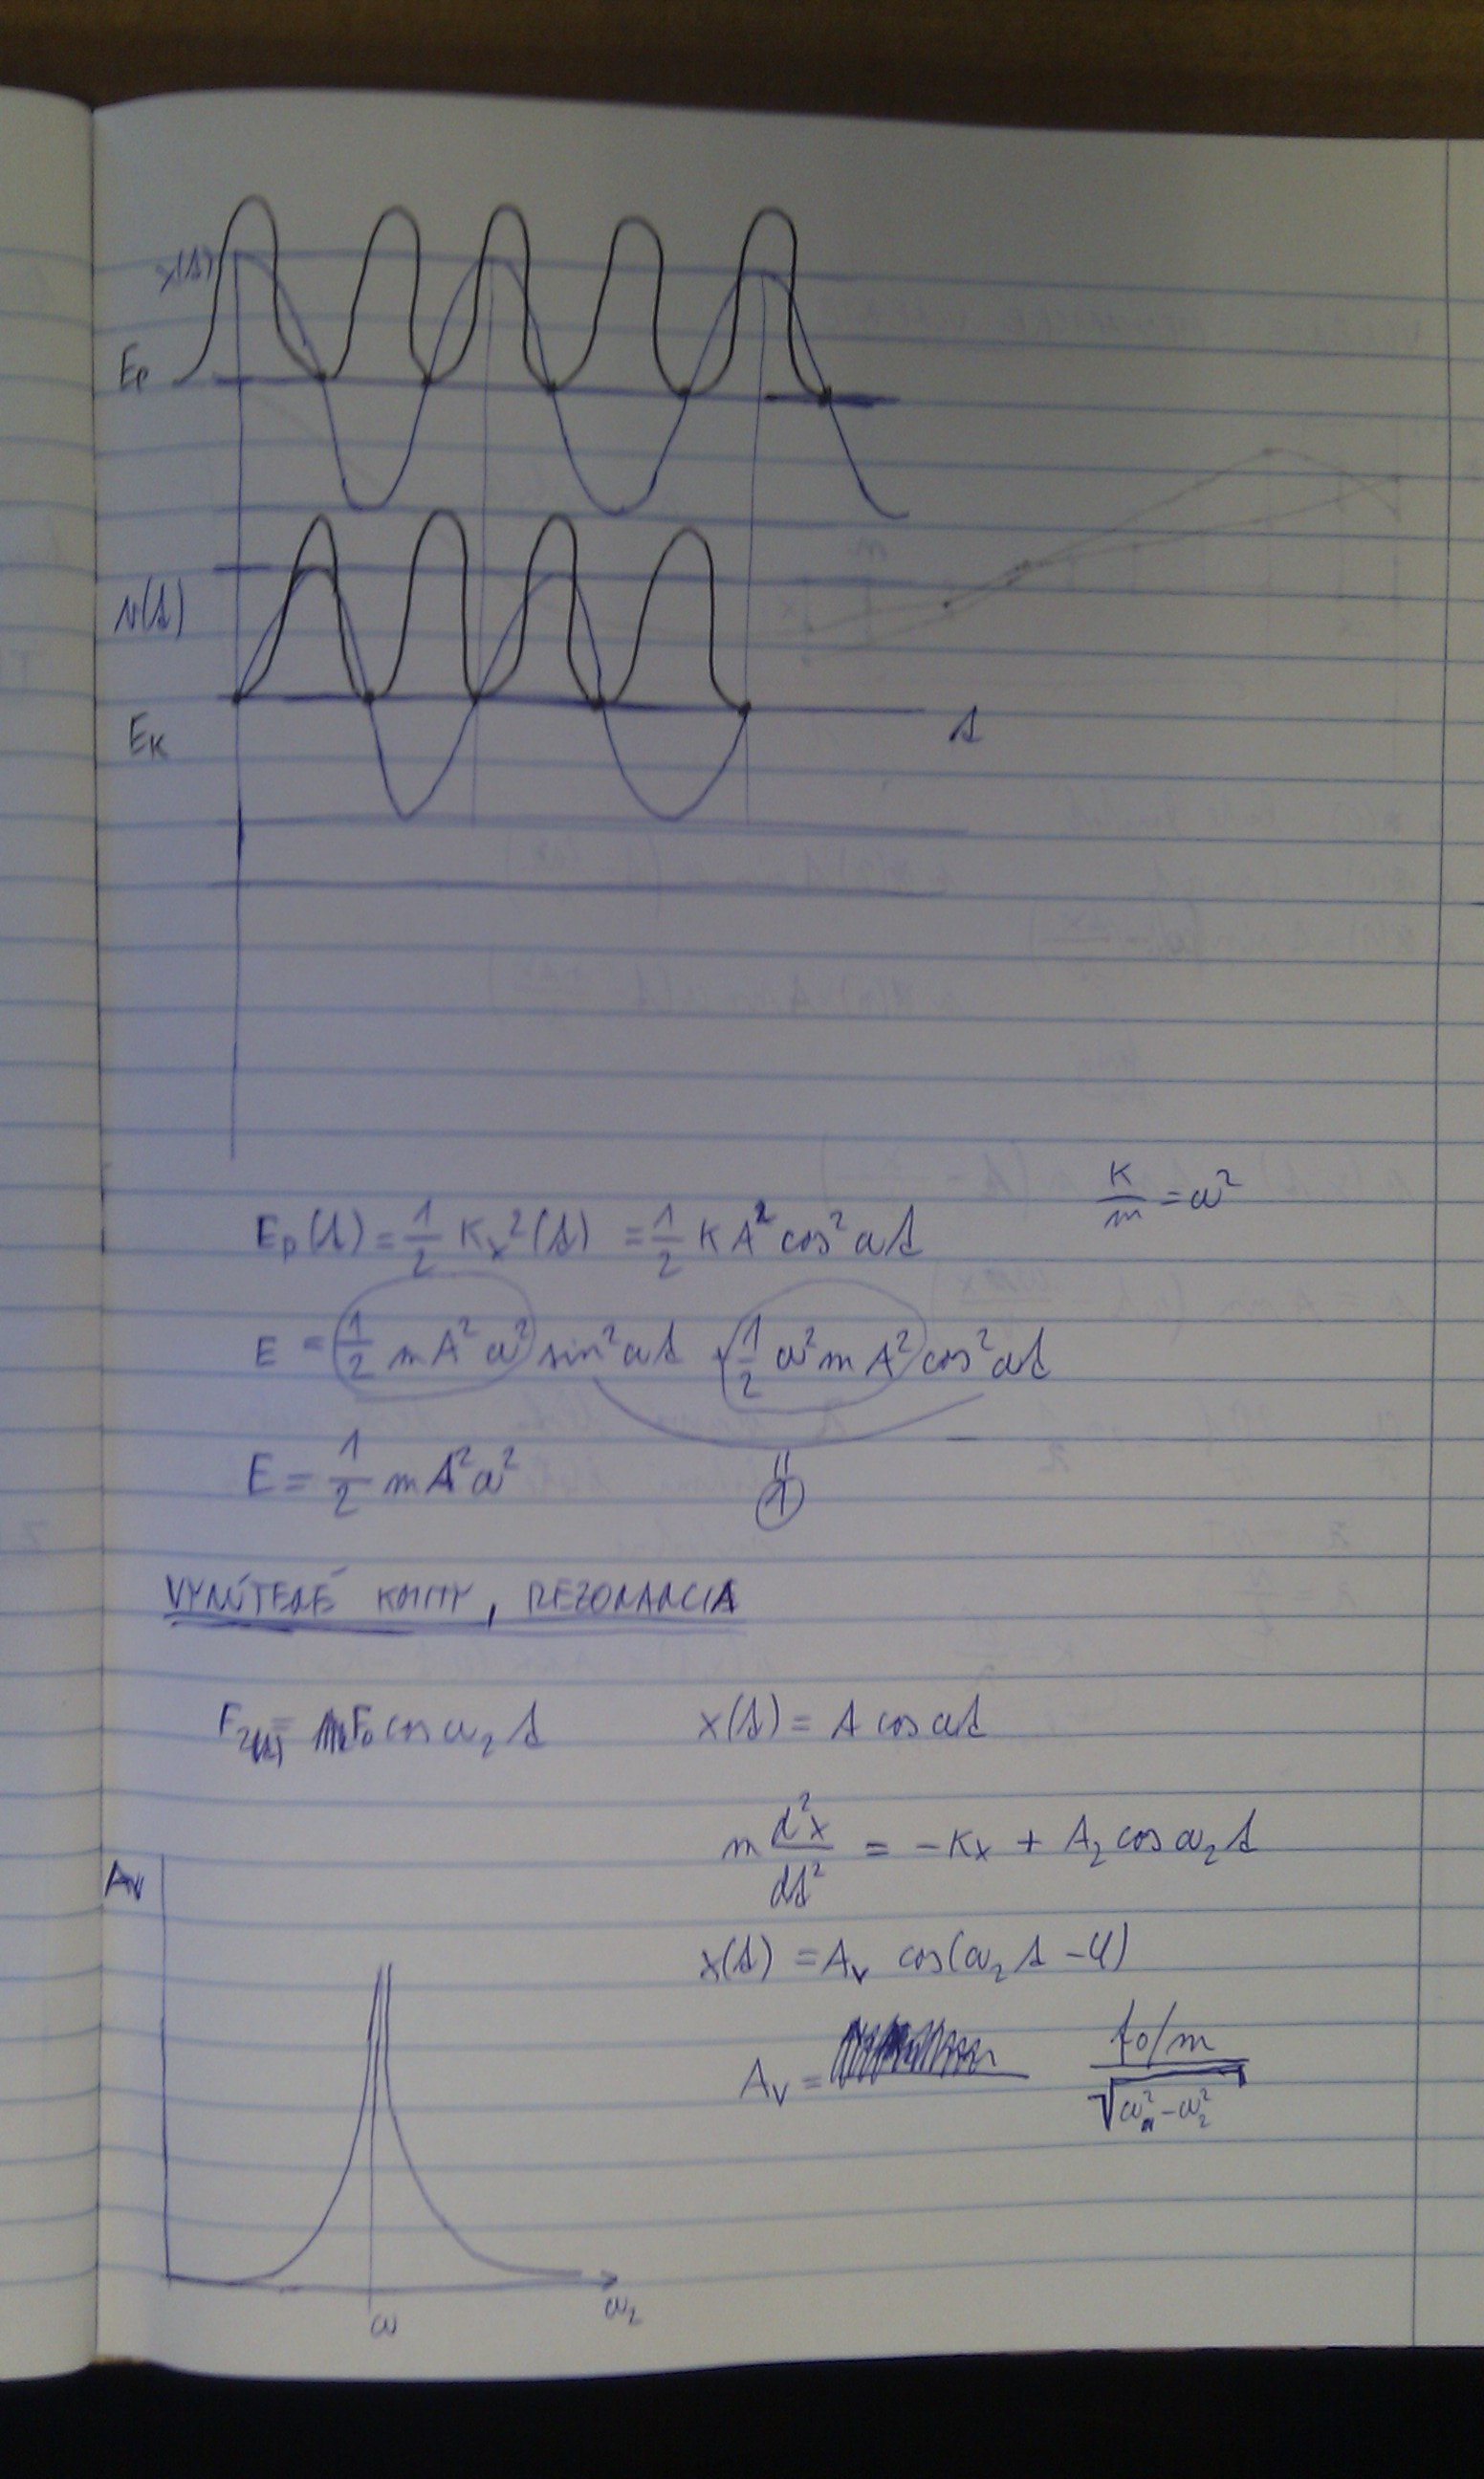 x(t)
Ep
v(t)
EK
t
K/m = ω²
Ep(t) = 1/2 Kx²(t) = 1/2 KA² cos² ωt
E = 1/2 mA²ω² sin² ωt + 1/2 ω²mA² cos² ωt
E = 1/2 mA²ω²
= 1
VYNÚTENÉ KMITY, REZONANCIA
F₂(t) = F₀ cos ω₂t x(t) = A cos ωt
m d²x/dt² = -Kx + A₂ cos ω₂t
Av
x(t) = Av cos(ω₂t - φ)
Av = fo/m / √(ω² - ω₂²)
ω
ω₂